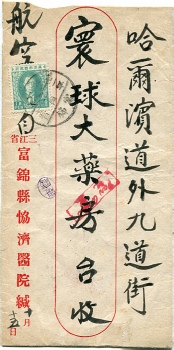 哈爾濱道外九道街
寰球大藥房台收
航空
三江省
富錦縣協濟醫院緘
十月
十五日